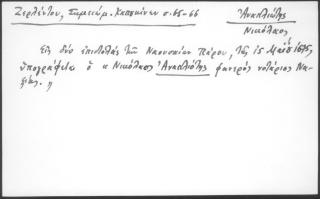 Ζερλέντου, Σημειώμ. Κασπιώνων σ. 65-66
Ἀναπλιώτης
Νικόλαος
Εἰς δύο ἐπιστολὰς τῶν Ναουσαίων Πάρου, τῆς 15 Μαΐου 1675,
ὑπογράφεται ὁ κ Νικόλαος Ἀναπλιώτης φανερὸς νοτάριος Να-
ξίας. "